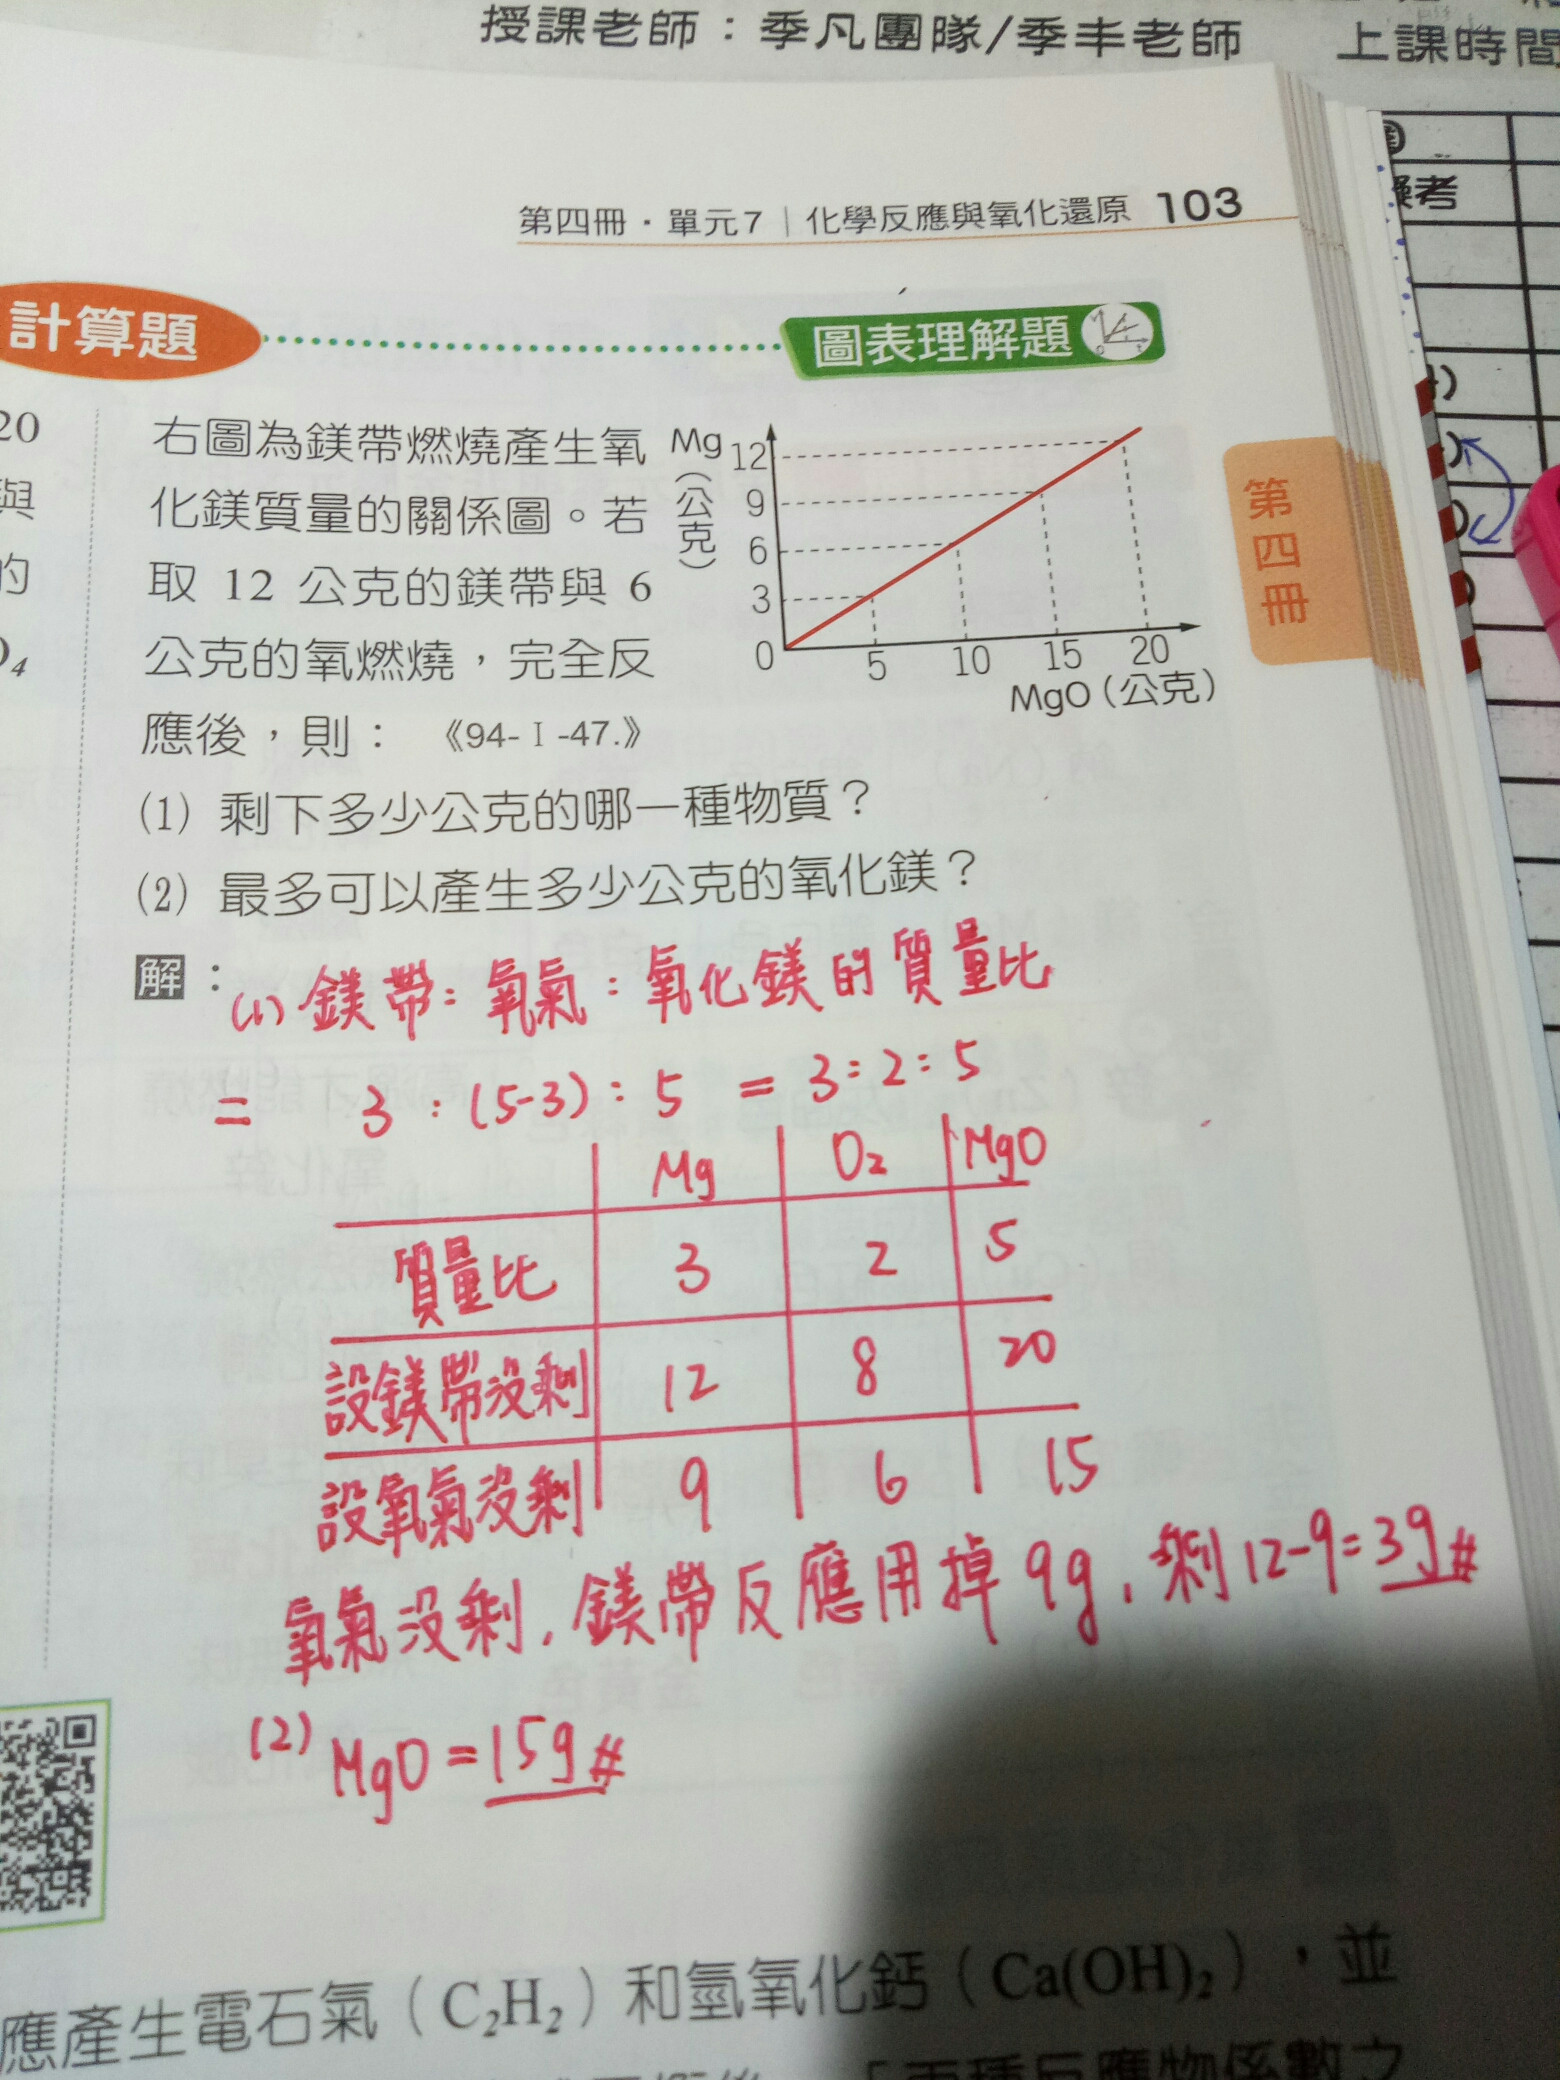 授課老師：季凡團隊/季丰老師 上課時間
第四冊・單元7｜化學反應與氧化還原 103
考
計算題
圖表理解題
20
與
的
4
右圖為鎂帶燃燒產生氧
化鎂質量的關係圖。若
取 12 公克的鎂帶與 6
公克的氧燃燒，完全反
應後，則： 《94-Ⅰ-47.》
Mg（公克）
12
9
6
3
0
5 10 15 20
MgO（公克）
第四冊
(1) 剩下多少公克的哪一種物質？
(2) 最多可以產生多少公克的氧化鎂？
解：
(1) 鎂帶：氧氣：氧化鎂的質量比
= 3：(5-3)：5 = 3：2：5
Mg O₂ MgO
質量比 3 2 5
設鎂帶沒剩 12 8 20
設氧氣沒剩 9 6 15
氧氣沒剩，鎂帶反應用掉9g，剩12-9=3g#
(2) MgO=15g#
應產生電石氣（C₂H₂）和氫氧化鈣（Ca(OH)₂），並
「兩種反應物係數之